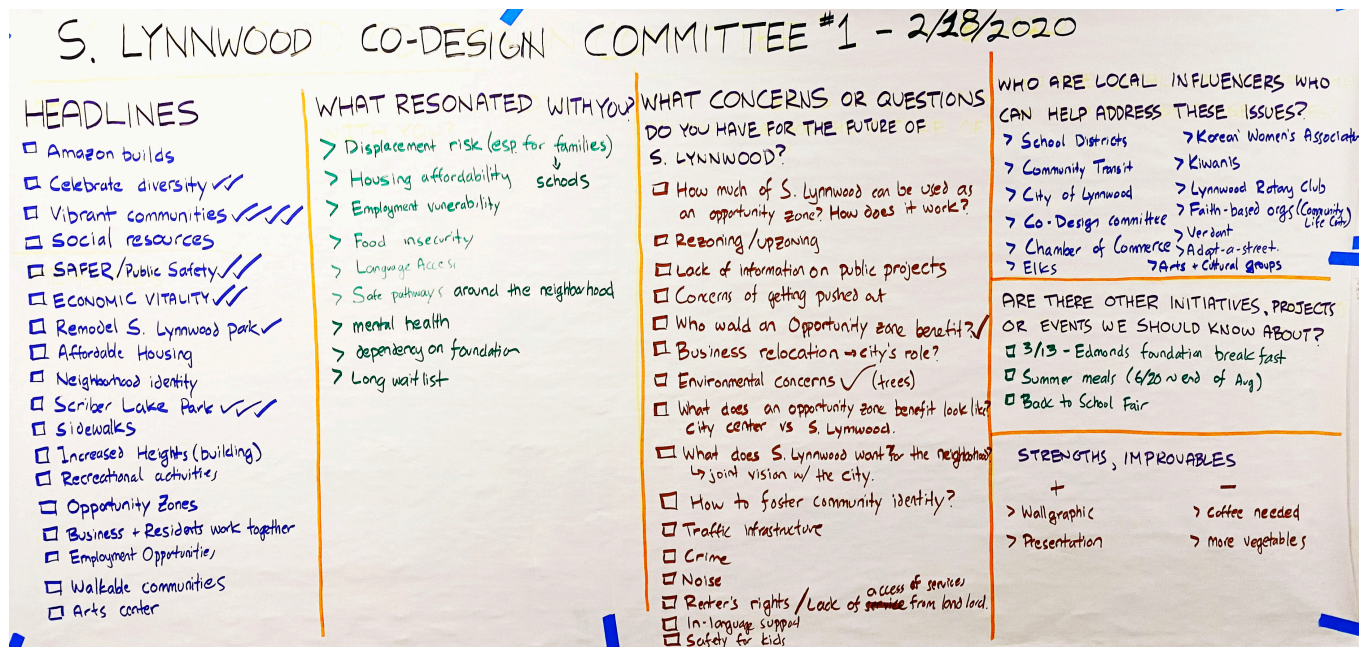 S. LYNNWOOD CO-DESIGN COMMITTEE #1 - 2/18/2020
HEADLINES
Amazon builds
Celebrate diversity ✓✓
Vibrant communities ✓✓✓✓
Social resources
SAFER/Public Safety ✓✓
ECONOMIC VITALITY ✓✓
Remodel S. Lynnwood Park ✓
Affordable Housing
Neighborhood identity
Scriber Lake Park ✓✓✓
Sidewalks
Increased Heights (building)
Recreational activities
Opportunity Zones
Business + Residents work together
Employment Opportunities
Walkable communities
Arts center
WHAT RESONATED WITH YOU?
> Displacement risk (esp. for families)
↓
schools
> Housing affordability
> Employment vunerability
> Food insecurity
> Language Access
> Safe pathways around the neighborhood
> mental health
> dependency on foundation
> Long waitlist
WHAT CONCERNS OR QUESTIONS
DO YOU HAVE FOR THE FUTURE OF
S. LYNNWOOD?
How much of S. Lynnwood can be used as
an opportunity zone? How does it work?
Rezoning/upzoning
Lack of information on public projects
Concerns of getting pushed out
Who would an Opportunity zone benefit? ✓
Business relocation → city's role?
Environmental concerns ✓ (trees)
What does an opportunity zone benefit look like?
City center vs S. Lynnwood.
What does S. Lynnwood want for the neighborhood?
↳ joint vision w/ the city.
How to foster community identity?
Traffic infrastructure
Crime
Noise
access of services
Renter's rights / Lack of service from landlord.
In-language support
Safety for kids
WHO ARE LOCAL INFLUENCERS WHO
CAN HELP ADDRESS THESE ISSUES?
> School Districts
> Community Transit
> City of Lynnwood
> Co-Design committee
> Chamber of Commerce
> Elks
> Korean Women's Associat
> Kiwanis
> Lynnwood Rotary Club
> Faith-based orgs (Community
Life Cntr)
> Verdant
> Adopt-a-street.
> Arts + Cultural groups
ARE THERE OTHER INITIATIVES, PROJECTS
OR EVENTS WE SHOULD KNOW ABOUT?
3/13 - Edmonds foundation breakfast
Summer meals (6/20 ~ end of Aug)
Back to School Fair
STRENGTHS, IMPROVABLES
+
> Wallgraphic
> Presentation
-
> coffee needed
> more vegetables